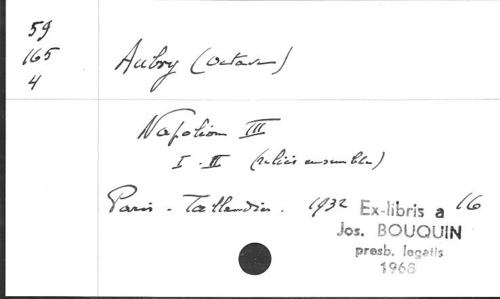 59
165
4
Aubry (Octave)
Napoléon III
I - II (reliés ensemble)
Paris - Tallandier. 1932 16
Ex-libris a
Jos. BOUQUIN
presb. legatis
1968